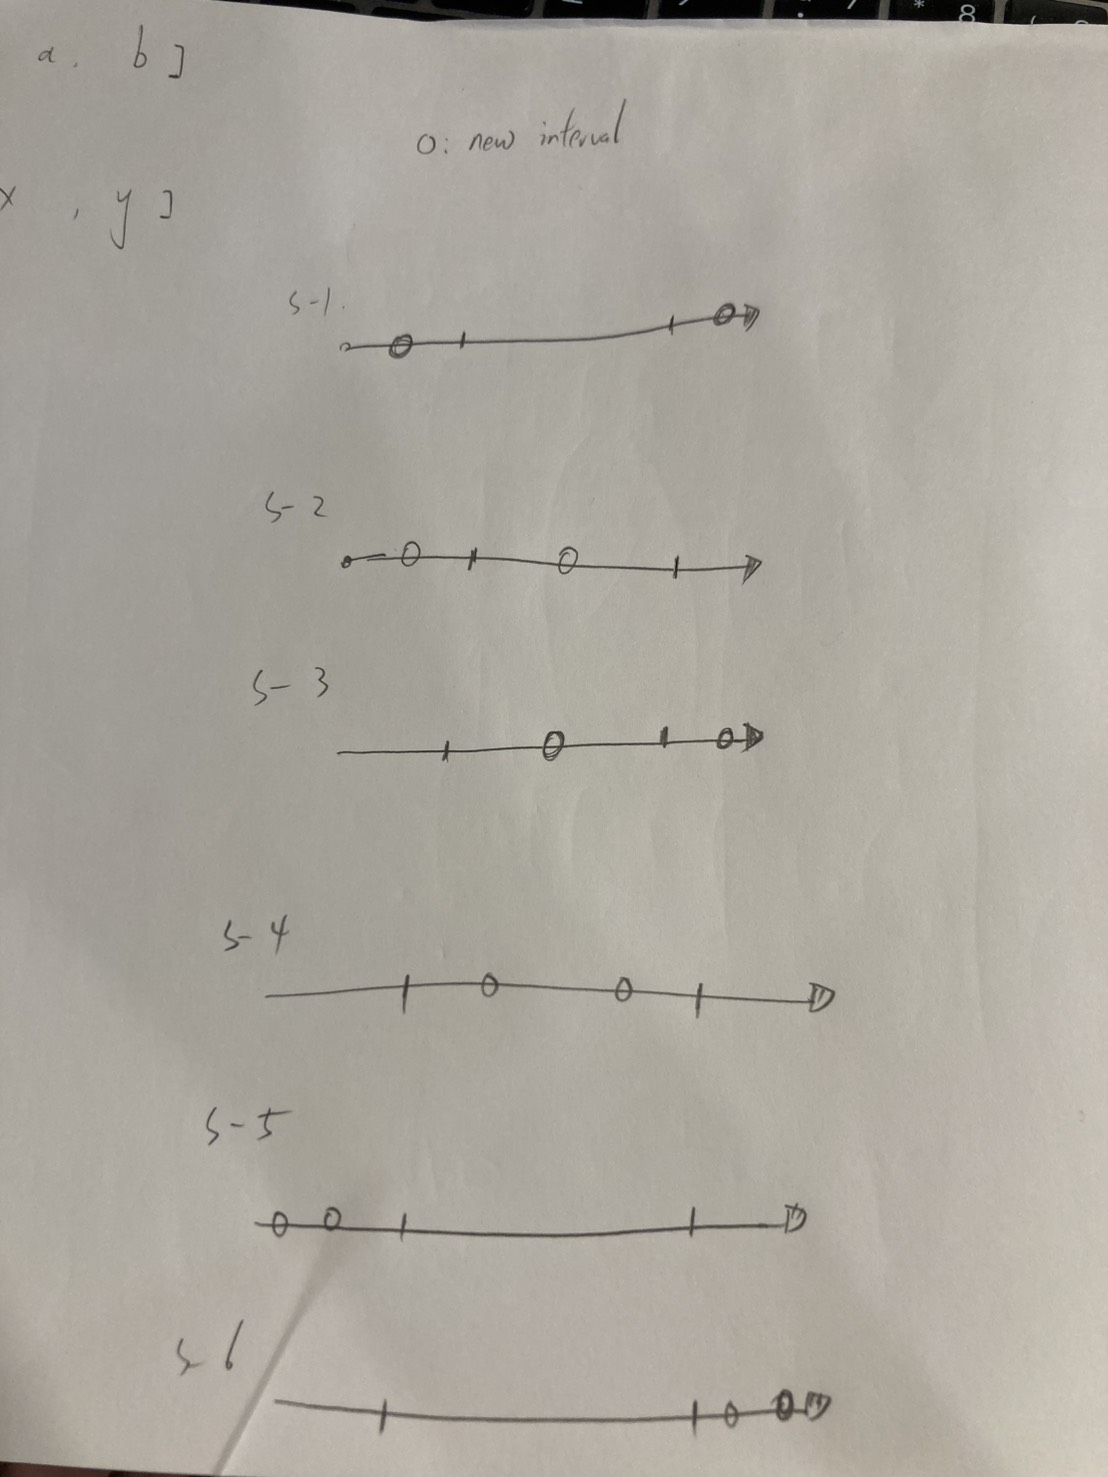 a, b]
O: new interval
x , y]
S-1.
S-2
S-3
S-4
S-5
S-6